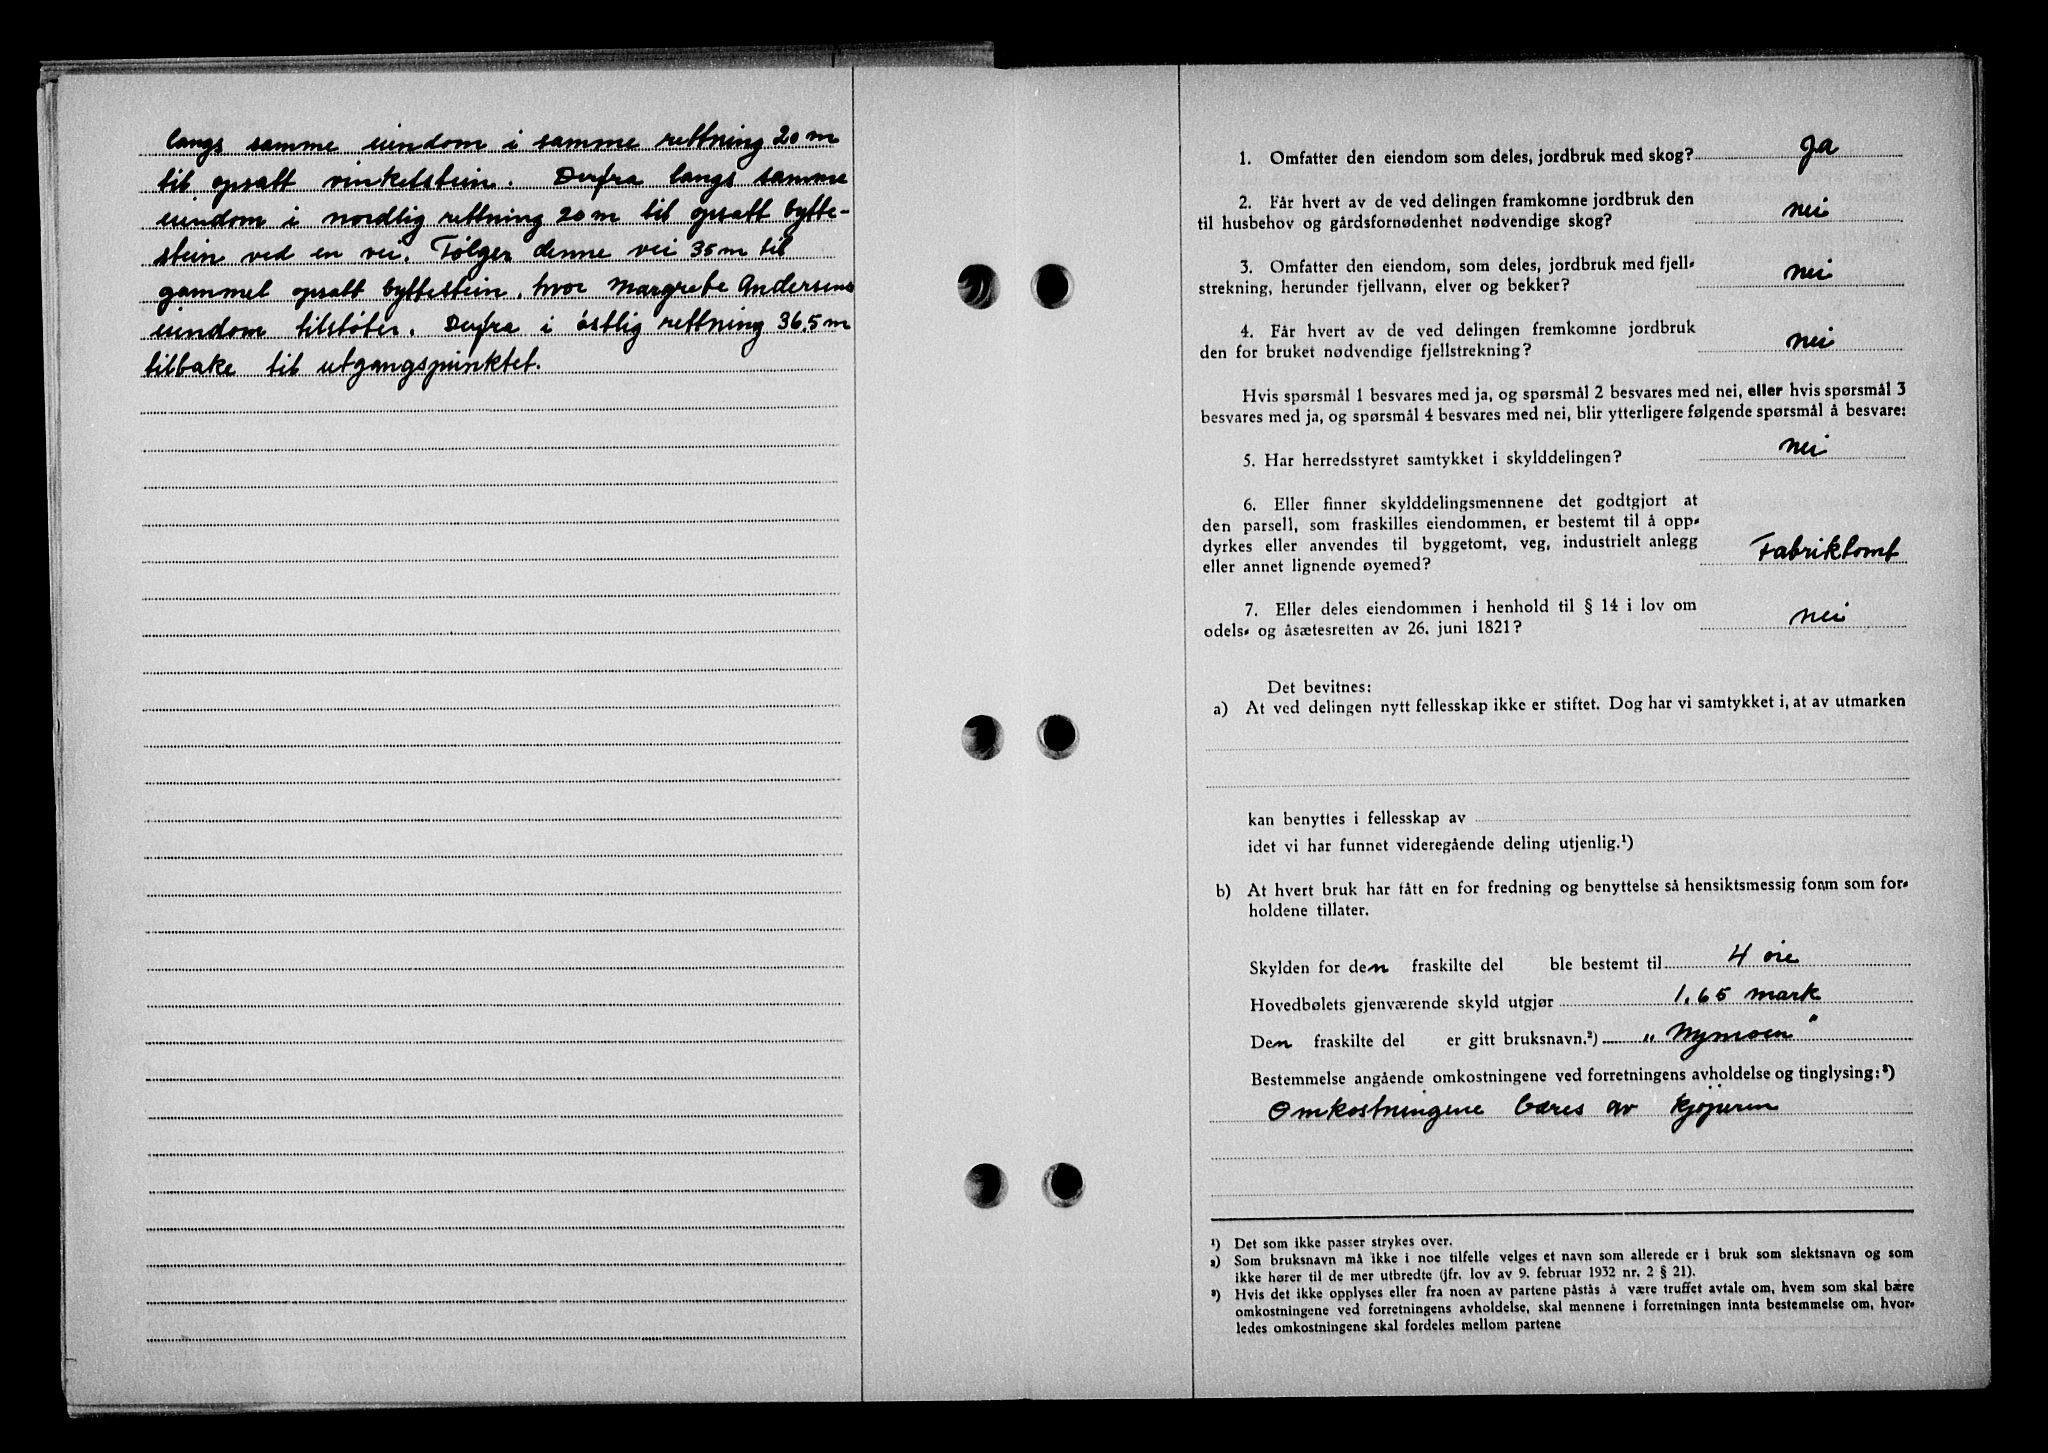 langs samme eiendom i samme rettning 20 m
til opsatt vinkelstein. Derfra langs samme
eiendom i nordlig rettning 20 m til opsatt bytte-
stein ved en vei. Følger denne vei 35 m til
gammel opsatt byttestein, hvor Margrete Andersens
eiendom tilstøter. Derfra i østlig rettning 36.5 m
tilbake til utgangspunktet.
1. Omfatter den eiendom som deles, jordbruk med skog? Ja
2. Får hvert av de ved delingen framkomne jordbruk den
til husbehov og gårdsfornødenhet nødvendige skog? nei
3. Omfatter den eiendom, som deles, jordbruk med fjell-
strekning, herunder fjellvann, elver og bekker? nei
4. Får hvert av de ved delingen fremkomne jordbruk
den for bruket nødvendige fjellstrekning? nei
Hvis spørsmål 1 besvares med ja, og spørsmål 2 besvares med nei, eller hvis spørsmål 3
besvares med ja, og spørsmål 4 besvares med nei, blir ytterligere følgende spørsmål å besvare:
5. Har herredsstyret samtykket i skylddelingen? nei
6. Eller finner skylddelingsmennene det godtgjort at
den parsell, som fraskilles eiendommen, er bestemt til å opp-
dyrkes eller anvendes til byggetomt, veg, industrielt anlegg
eller annet lignende øyemed? Fabriktomt
7. Eller deles eiendommen i henhold til § 14 i lov om
odels- og åsætesretten av 26. juni 1821? nei
Det bevitnes:
a) At ved delingen nytt fellesskap ikke er stiftet. Dog har vi samtykket i, at av utmarken
kan benyttes i fellesskap av
idet vi har funnet videregående deling utjenlig.¹)
b) At hvert bruk har fått en for fredning og benyttelse så hensiktsmessig form som for-
holdene tillater.
Skylden for den fraskilte del ble bestemt til 4 øre
Hovedbølets gjenværende skyld utgjør 1.65 mark
Den fraskilte del er gitt bruksnavn.²) „Nymoen"
Bestemmelse angående omkostningene ved forretningens avholdelse og tinglysing:³)
Omkostningene bæres av kjøperen
¹) Det som ikke passer strykes over.
²) Som bruksnavn må ikke i noe tilfelle velges et navn som allerede er i bruk som slektsnavn og som
ikke hører til de mer utbredte (jfr. lov av 9. februar 1932 nr. 2 § 21).
³) Hvis det ikke opplyses eller fra noen av partene påstås å være truffet avtale om, hvem som skal bære
omkostningene ved forretningens avholdelse, skal mennene i forretningen innta bestemmelse om, hvor-
ledes omkostningene skal fordeles mellom partene